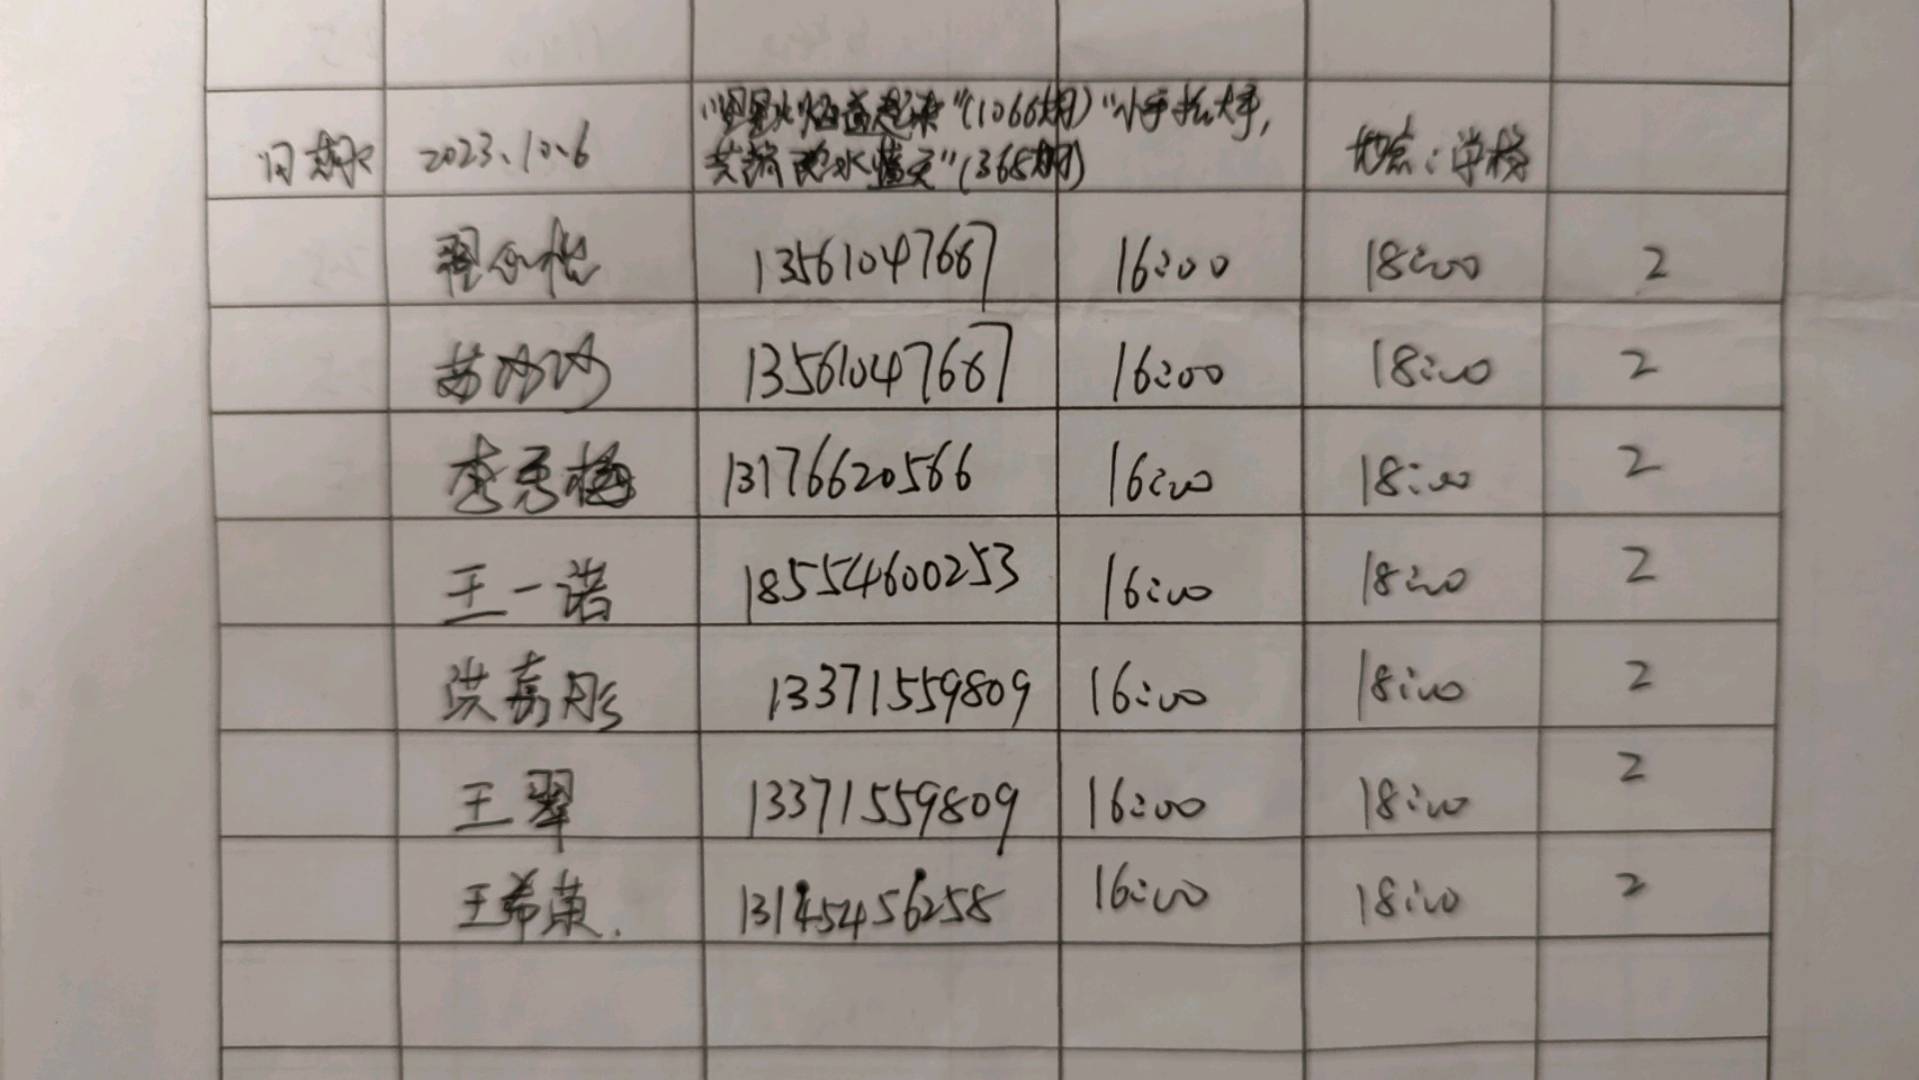 日期 2023.10.6 "(1066期)"小手拉大手, 地点:学校
共 水情"(368期)
程 13561047667 16:00 18:00 2
苏 13561047667 16:00 18:00 2
李秀梅 13176620566 16:00 18:00 2
王一诺 18554600253 16:00 18:00 2
洪嘉彤 13371559809 16:00 18:00 2
王翠 13371559809 16:00 18:00 2
王希 13145456258 16:00 18:00 2